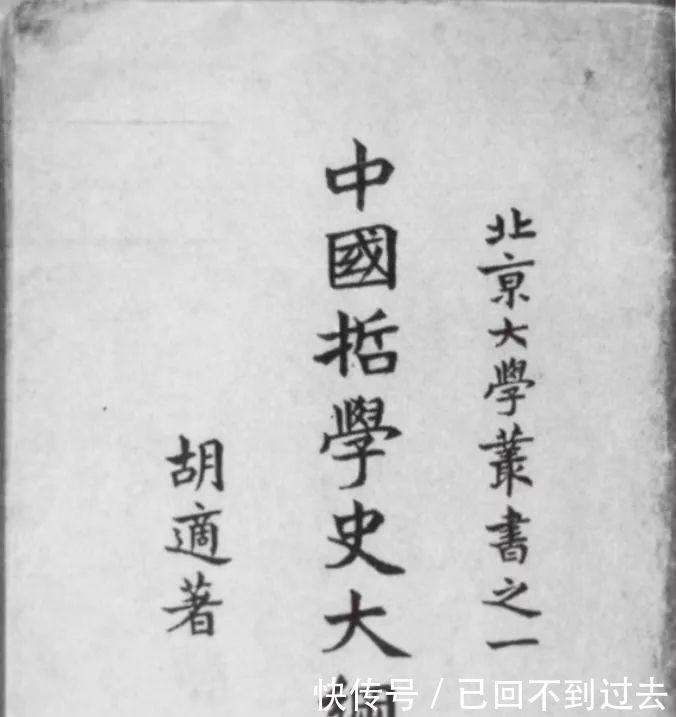 北京大學叢書之一
中國哲學史大綱
胡適著
快传号 / 已回不到过去